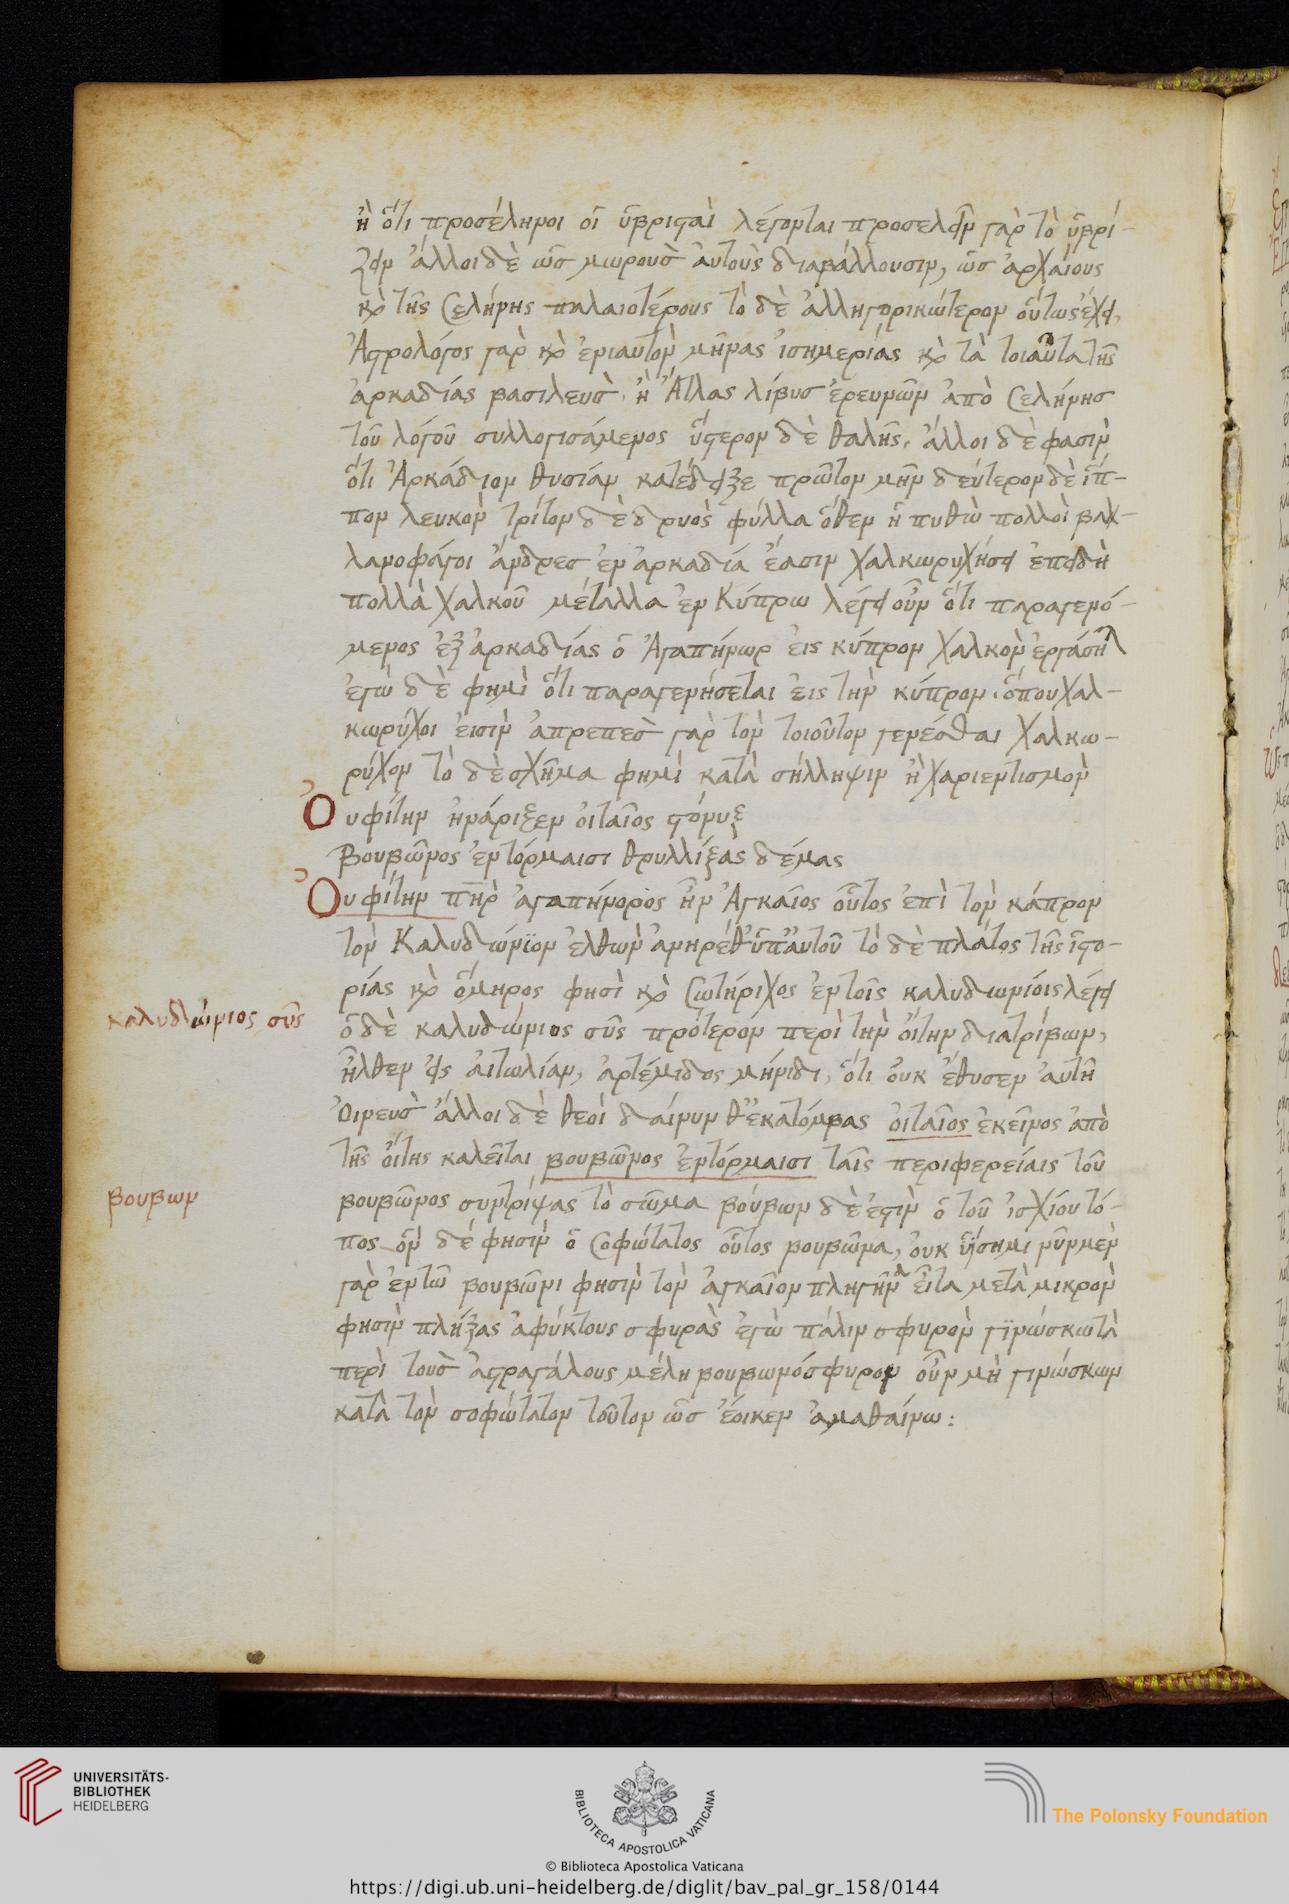 ἢ ὅτι προσέληνοι οἱ ὑβρισταὶ λέγονται προσελεῖν γὰρ τὸ ὑβρί-
ζειν ἄλλοι δὲ ὡς μωροὺς ἀυτοὺς διαβάλλουσιν, ὡς ἀρχαίους
καὶ τῆς Σελήνης παλαιοτέρους τὸ δὲ ἀλληγορικώτερον οὕτως ἔχει,
Ἀστρολόγος γὰρ καὶ ἐνιαυτὸν μῆνας ἰσημερίας καὶ τὰ τοιαῦτα τῆς
ἀρκαδίας βασιλεὺς ἢ Ἄτλας λίβυσ ἐρευνῶν ἀπὸ Σελήνησ
τοῦ λόγοῦ συλλογισάμενος ὕστερον δὲ θαλῆς. ἄλλοι δὲ φασὶν
ὅτι Ἀρκάδιον θυσίαν κατέδειξε πρῶτον μῆν δεύτερον δὲ ἵπ-
πον λευκὸν τρίτον δὲ δρυὸς φύλλα ὅθεν ἡ πυθὼ πολλοὶ βαλ-
λανοφάγοι ἄνδρεσ ἐν ἀρκαδία ἔασιν χαλκωρυχήσει ἐπειδὴ
πολλὰ χαλκοῦ μέταλλα ἐν Κύπρω λέγει οὖν ὅτι παραγενό-
μενος ἐξ ἀρκαδίας ὁ Ἀγαπήνωρ ἐις κύπρον χαλκὸν ἐργάσητ
ἐγὼ δὲ φημὶ ὅτι παραγενήσεται ἐις τὴν κύπρον. ὅπου χαλ-
κωρύχοι ἐισὶν ἀπρεπὲσ γὰρ τὸν τοιοῦτον γενέσθαι χαλκω-
ρύχον τὸ δὲ σχῆμα φημὶ κατὰ σήλληψιν ἢ χαριεντισμὸν
Ὁυφίτην ἠνάριξεν ὀιταῖος στόνυξ
Βουβῶνος ἐν τόρμαισι θρυλλίξας δέμας
Ὁυφίτην πὴρ ἀγαπήνορος ἦν Ἀγκαῖος οὗτος ἐπὶ τὸν κάπρον
τὸν Καλυδώνϊον ἐλθὼν ἀνηρέθ ὑπ ἀυτοῦ τὸ δὲ πλάτος τῆς ἱστο-
ρίας καὶ ὅμηρος φησὶ καὶ Σωτήριχος ἐν τοῖς καλυδωνίοις λέγει
καλυδώνιος σῦς
ὁ δὲ καλυδώνιος σῦς πρότερον περὶ τὴν ὄιτην διατρίβων,
ἦλθεν εἰς ἀιτωλίαν, ἀρτέμιδος μήνιδι, ὅτι ὀυκ ἔθυσεν ἀυτῆ
Ὀινεὺσ ἄλλοι δὲ θεοὶ δαίνυν θ ἑκατόμβας ὀιταῖος ἐκεῖνος ἀπὸ
τῆς ὄιτης καλεῖται βουβῶνος ἐν τόρμαισι ταῖς περιφερείαις τοῦ
βουβων
βουβῶνος συντρίψας τὸ σῶμα βούβων δὲ ἐστὶν ὁ τοῦ ἰσχίου τό-
πος ὃν δέ φησὶν ὁ Σοφώτατος οὗτος βουβῶνα, ὀυκ ἵσημι νῦν μὲν
γὰρ ἐν τῶ βουβῶνι φησὶν τὸν ἀγκαῖον πληγῆναι εἶτα μετὰ μικρὸν
φησὶν πλήξας ἀφύκτους σφυρὰς ἐγὼ πάλιν σφυρὸν γϊνώσκω τὰ
περὶ τοὺσ ἀστραγάλους μέλη βουβωνόσφυρον οὖν μὴ γινώσκων
κατὰ τὸν σοφώτατον τοῦτον ὡς ἔοικεν ἀμαθαίνω:
UNIVERSITÄTS-
BIBLIOTHEK
HEIDELBERG
BIBLIOTECA APOSTOLICA VATICANA
The Polonsky Foundation
© Biblioteca Apostolica Vaticana
https://digi.ub.uni-heidelberg.de/diglit/bav_pal_gr_158/0144